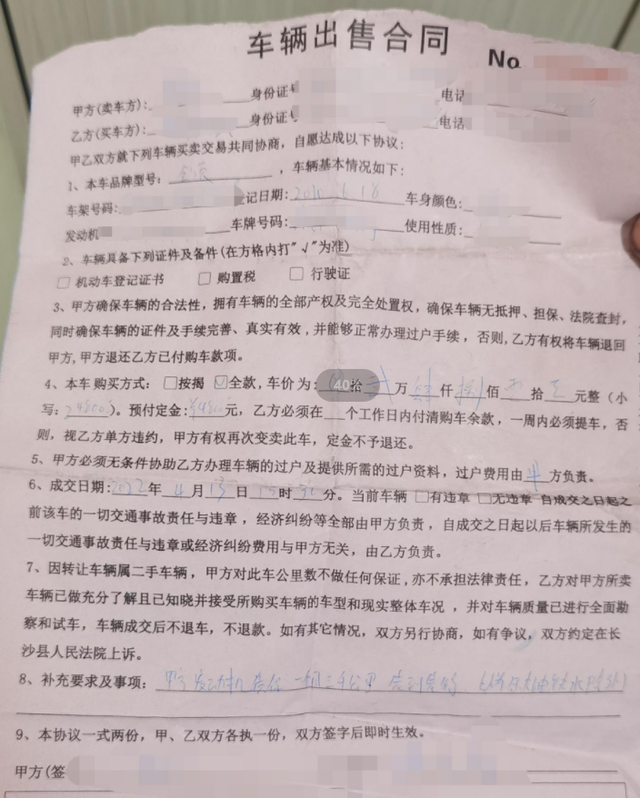 车辆出售合同
No
甲方(卖车方): 身份证号
乙方(买车方): 身份证号 电话
甲乙双方就下列车辆买卖交易共同协商，自愿达成以下协议:
1、本车品牌型号: ，车辆基本情况如下:
车架号码: 记日期: 车身颜色:
发动机 车牌号码: 使用性质:
2、车辆具备下列证件及备件(在方格内打"√"为准)
□ 机动车登记证书 □ 购置税 □ 行驶证
3、甲方确保车辆的合法性，拥有车辆的全部产权及完全处置权，确保车辆无抵押、担保、法院查封，
同时确保车辆的证件及手续完善、真实有效，并能够正常办理过户手续，否则,乙方有权将车辆退回
甲方,甲方退还乙方已付购车款项。
4、本车购买方式: □按揭 □全款，车价为: 拾 万 肆 仟 捌 佰 拾 元整（小
写: 24800）。预付定金: 元，乙方必须在 个工作日内付清购车余款，一周内必须提车，否
则，视乙方单方违约，甲方有权再次变卖此车，定金不予退还。
5、甲方必须无条件协助乙方办理车辆的过户及提供所需的过户资料，过户费用由 方负责。
6、成交日期: 2022 年 4 月 13 日 时 分。当前车辆 □有违章 □无违章 自成交之日起之
前该车的一切交通事故责任与违章，经济纠纷等全部由甲方负责，自成交之日起以后车辆所发生的
一切交通事故责任与违章或经济纠纷费用与甲方无关，由乙方负责。
7、因转让车辆属二手车辆，甲方对此车公里数不做任何保证,亦不承担法律责任，乙方对甲方所卖
车辆已做充分了解且已知晓并接受所购买车辆的车型和现实整体车况，并对车辆质量已进行全面勘
察和试车，车辆成交后不退车，不退款。如有其它情况，双方另行协商，如有争议，双方约定在长
沙县人民法院上诉。
8、补充要求及事项: 发动机 三千公里
9、本协议一式两份，甲、乙双方各执一份，双方签字后即时生效。
甲方(签